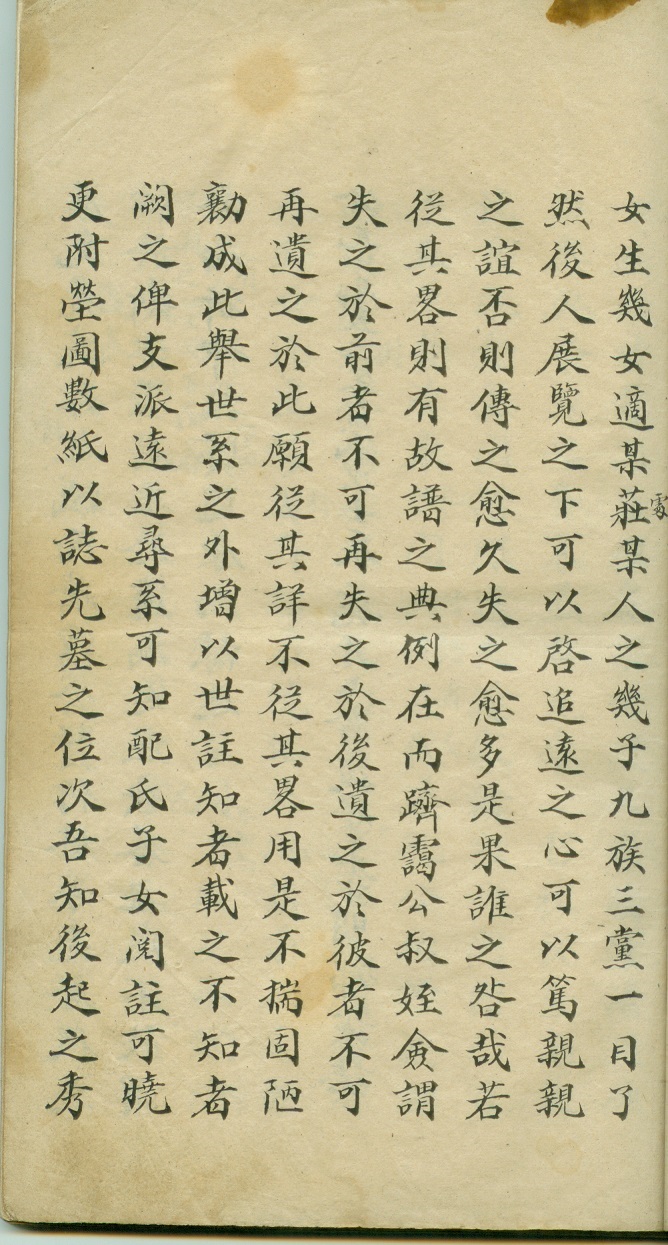 女生幾女適某莊某人之幾子九族三黨一目了
然後人展覽之下可以啓追遠之心可以篤親親
之誼否則傳之愈久失之愈多是果誰之咎哉若
從其畧則有故譜之典例在而躋靄公叔姪僉謂
失之於前者不可再失之於後遺之於彼者不可
再遺之於此願從其詳不從其畧用是不揣固陋
勷成此舉世系之外增以世註知者載之不知者
闕之俾支派遠近尋系可知配氏子女閱註可曉
更附塋圖數紙以誌先墓之位次吾知後起之秀